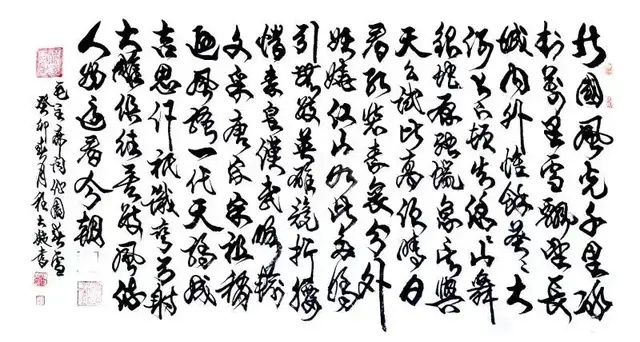 北國風光千里冰
封萬里雪飄望長
城內外惟餘莽〻大
河上下頓失滔〻山舞
銀蛇原馳蠟象欲與
天公試比高須晴日
看紅裝素裹分外
妖嬈江山如此多嬌
引無數英雄競折腰
惜秦皇漢武略輸
文采唐宗宋祖稍
遜風騷一代天驕成
吉思汗祇識彎弓射
大雕俱往矣數風流
人物還看今朝
毛主席詞沁園春雪
癸卯 月 書